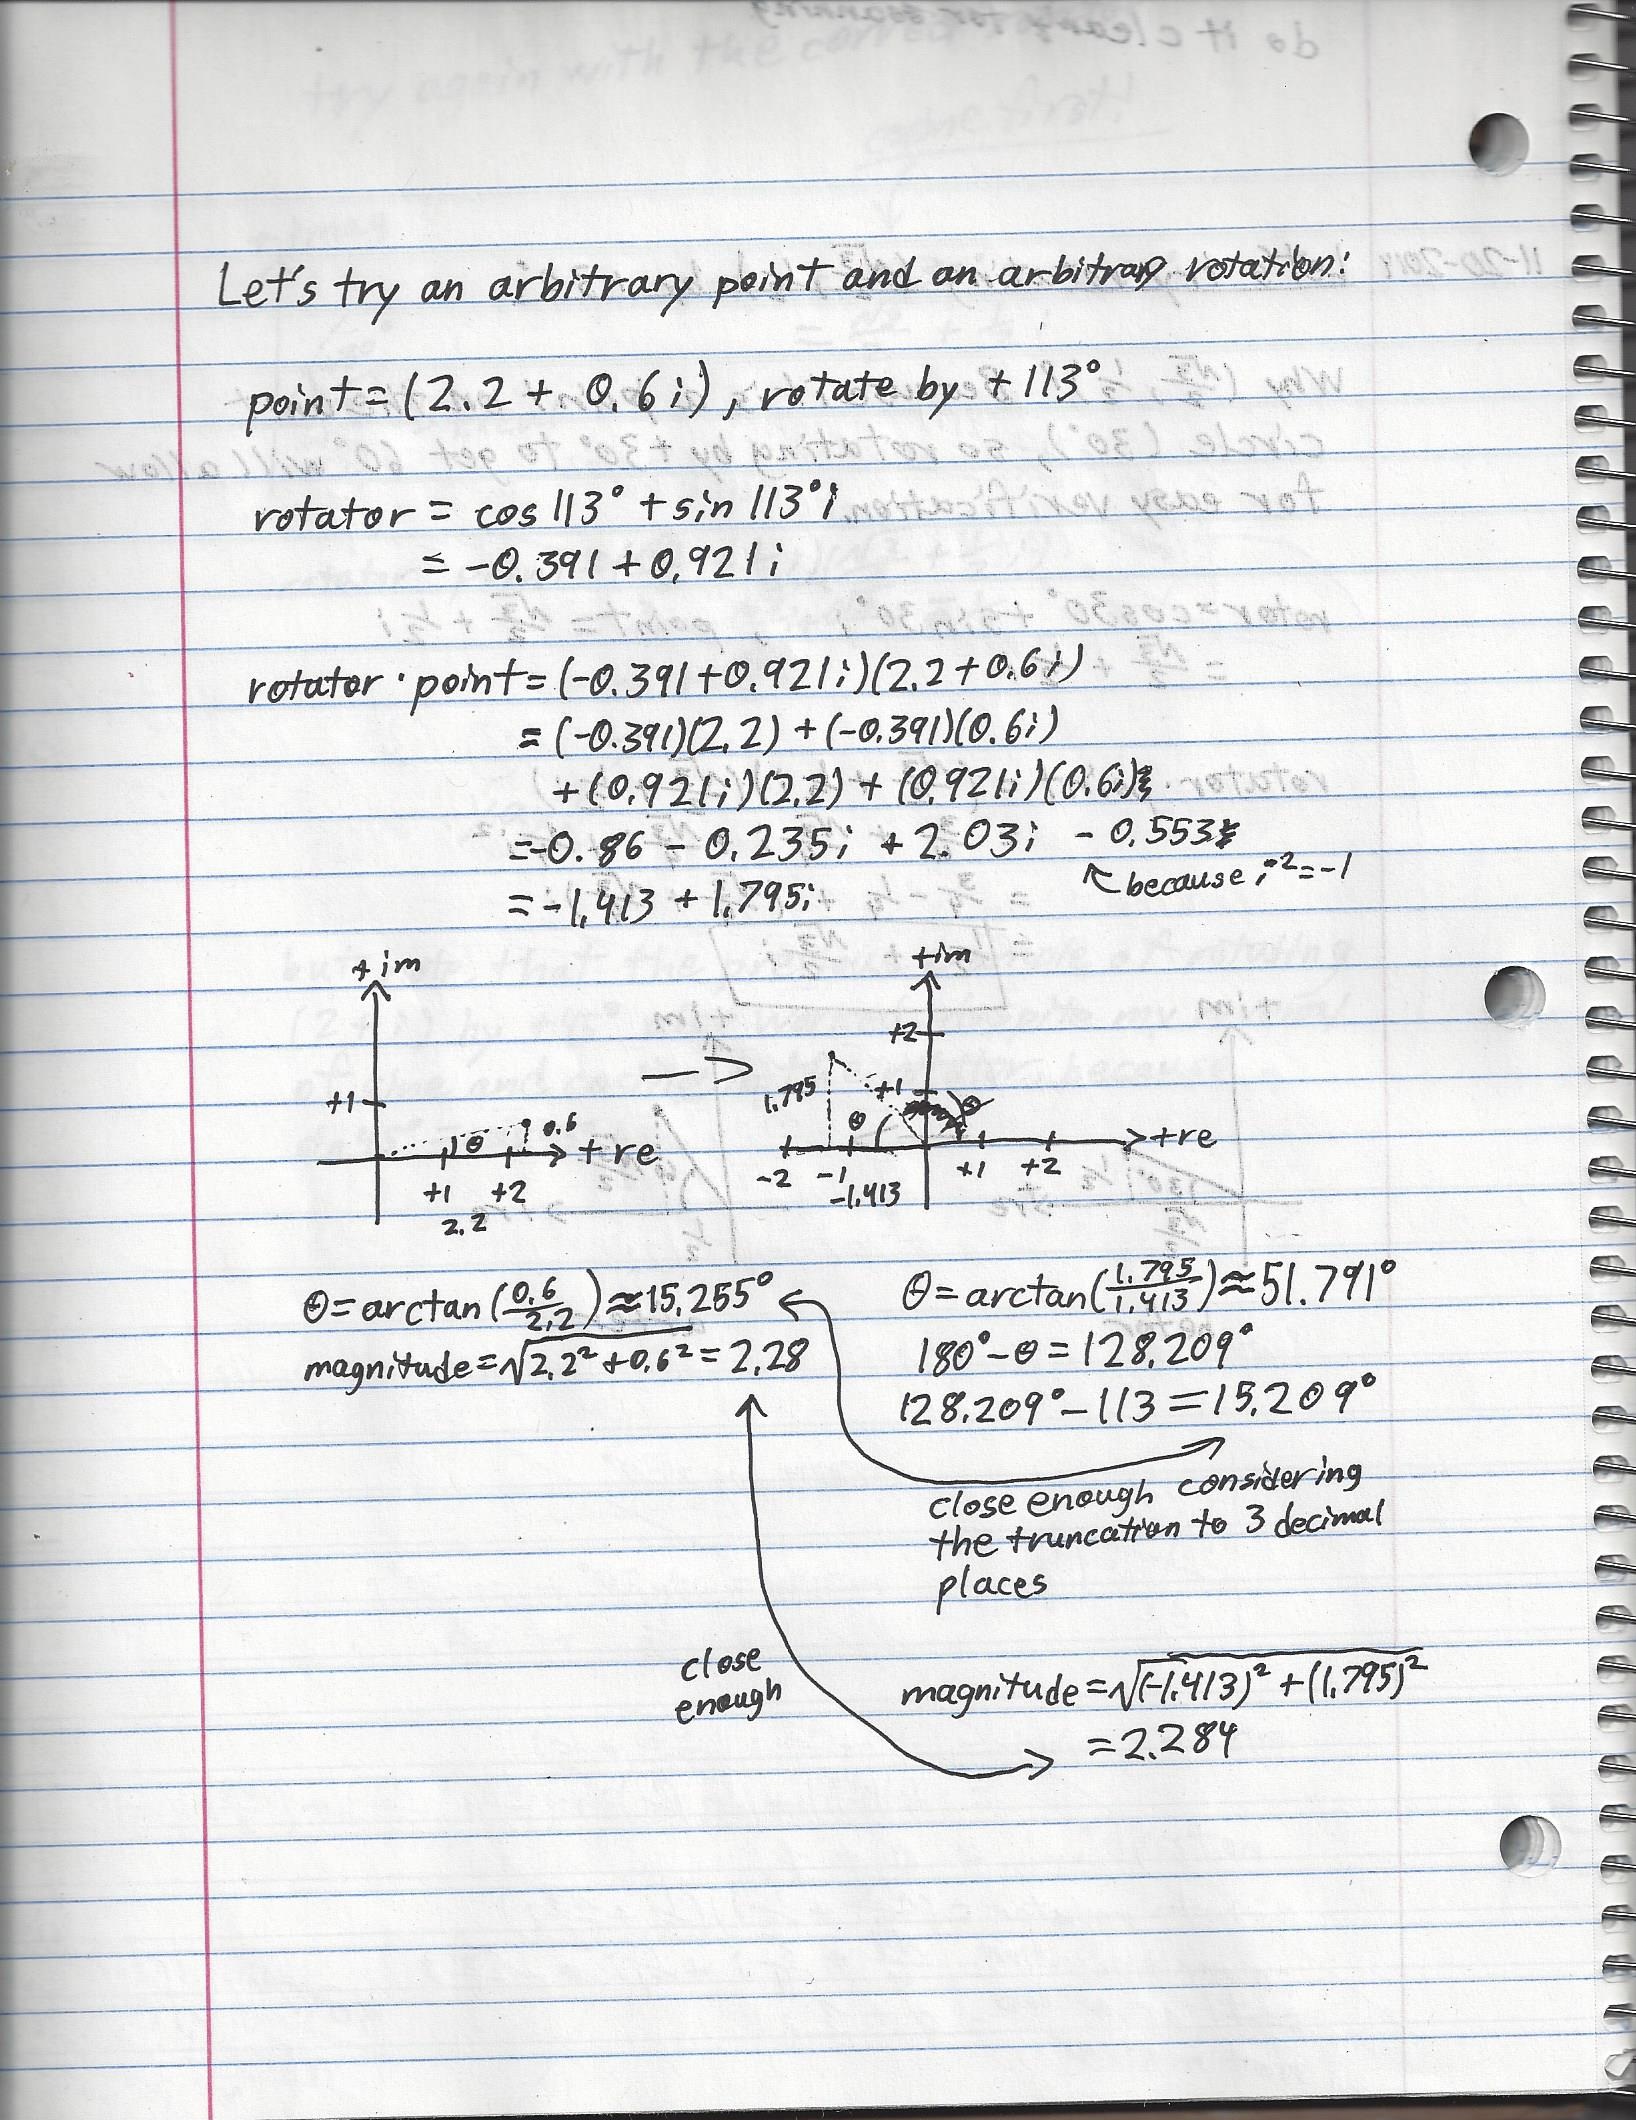 Let's try an arbitrary point and an arbitrary rotation:
point = (2.2 + 0.6i), rotate by +113°
rotator = cos 113° + sin 113° i
= -0.391 + 0.921i
rotator · point = (-0.391+0.921i)(2.2+0.6i)
= (-0.391)(2.2) + (-0.391)(0.6i)
+ (0.921i)(2.2) + (0.921i)(0.6i)
= -0.86 - 0.235i + 2.03i - 0.553
because i²=-1
= -1.413 + 1.795i
+im
+1
θ
0.6
+re
+1 +2
2.2
—>
+im
+2
1.795
+1
θ
θ
+re
-2 -1 +1 +2
-1.413
θ = arctan(0.6/2.2) ≈ 15.255°
magnitude = √2.2² + 0.6² = 2.28
θ = arctan(1.795/1.413) ≈ 51.791°
180° - θ = 128.209°
128.209° - 113 = 15.209°
close enough considering
the truncation to 3 decimal
places
close
enough
magnitude = √(-1.413)² + (1.795)²
= 2.284